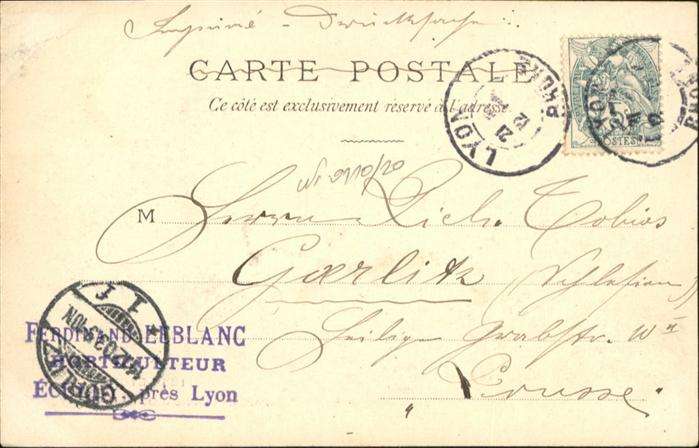 Imprimé - Drucksache
CARTE POSTALE
Ce côté est exclusivement réservé à l'adresse
LYON RHONE
POSTES
M Herrn Rich. Tobias
Goerlitz (Schlesien)
Heilige Grabstr.
Prusse
FERDINAND LEBLANC
HORTICULTEUR
près Lyon
GÖRLITZ